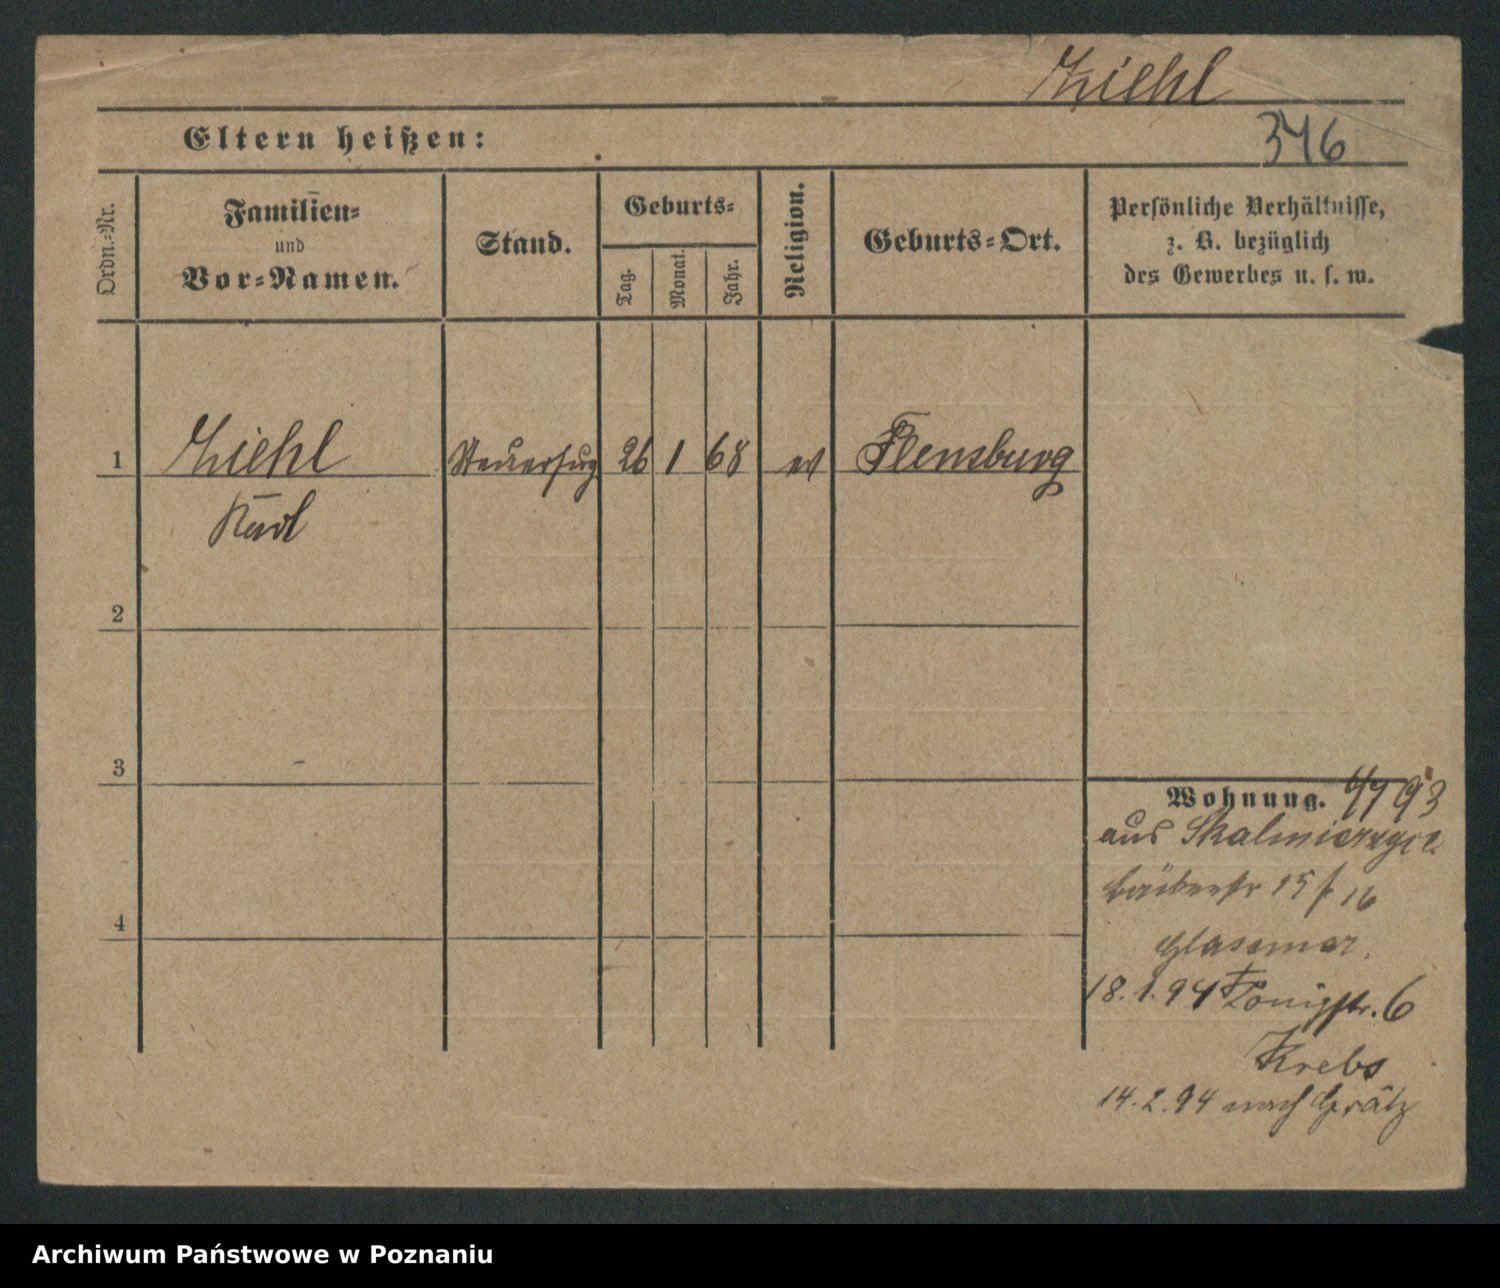 Ziehl
Eltern heißen:
346
Ordn.-Nr.
Familien-
und
Vor-Namen.
Stand.
Geburts-
Tag.
Monat.
Jahr.
Religion.
Geburts-Ort.
Persönliche Verhältnisse,
z. B. bezüglich
des Gewerbes u. s. w.
1 Ziehl 26 1 68 ev Flensburg
Karl
2
3
4
Wohnung. 4/7 93
aus Skalmierzyce
15 16
18.1.94 6
Krebs
14.2.94 nach Grätz
Archiwum Państwowe w Poznaniu